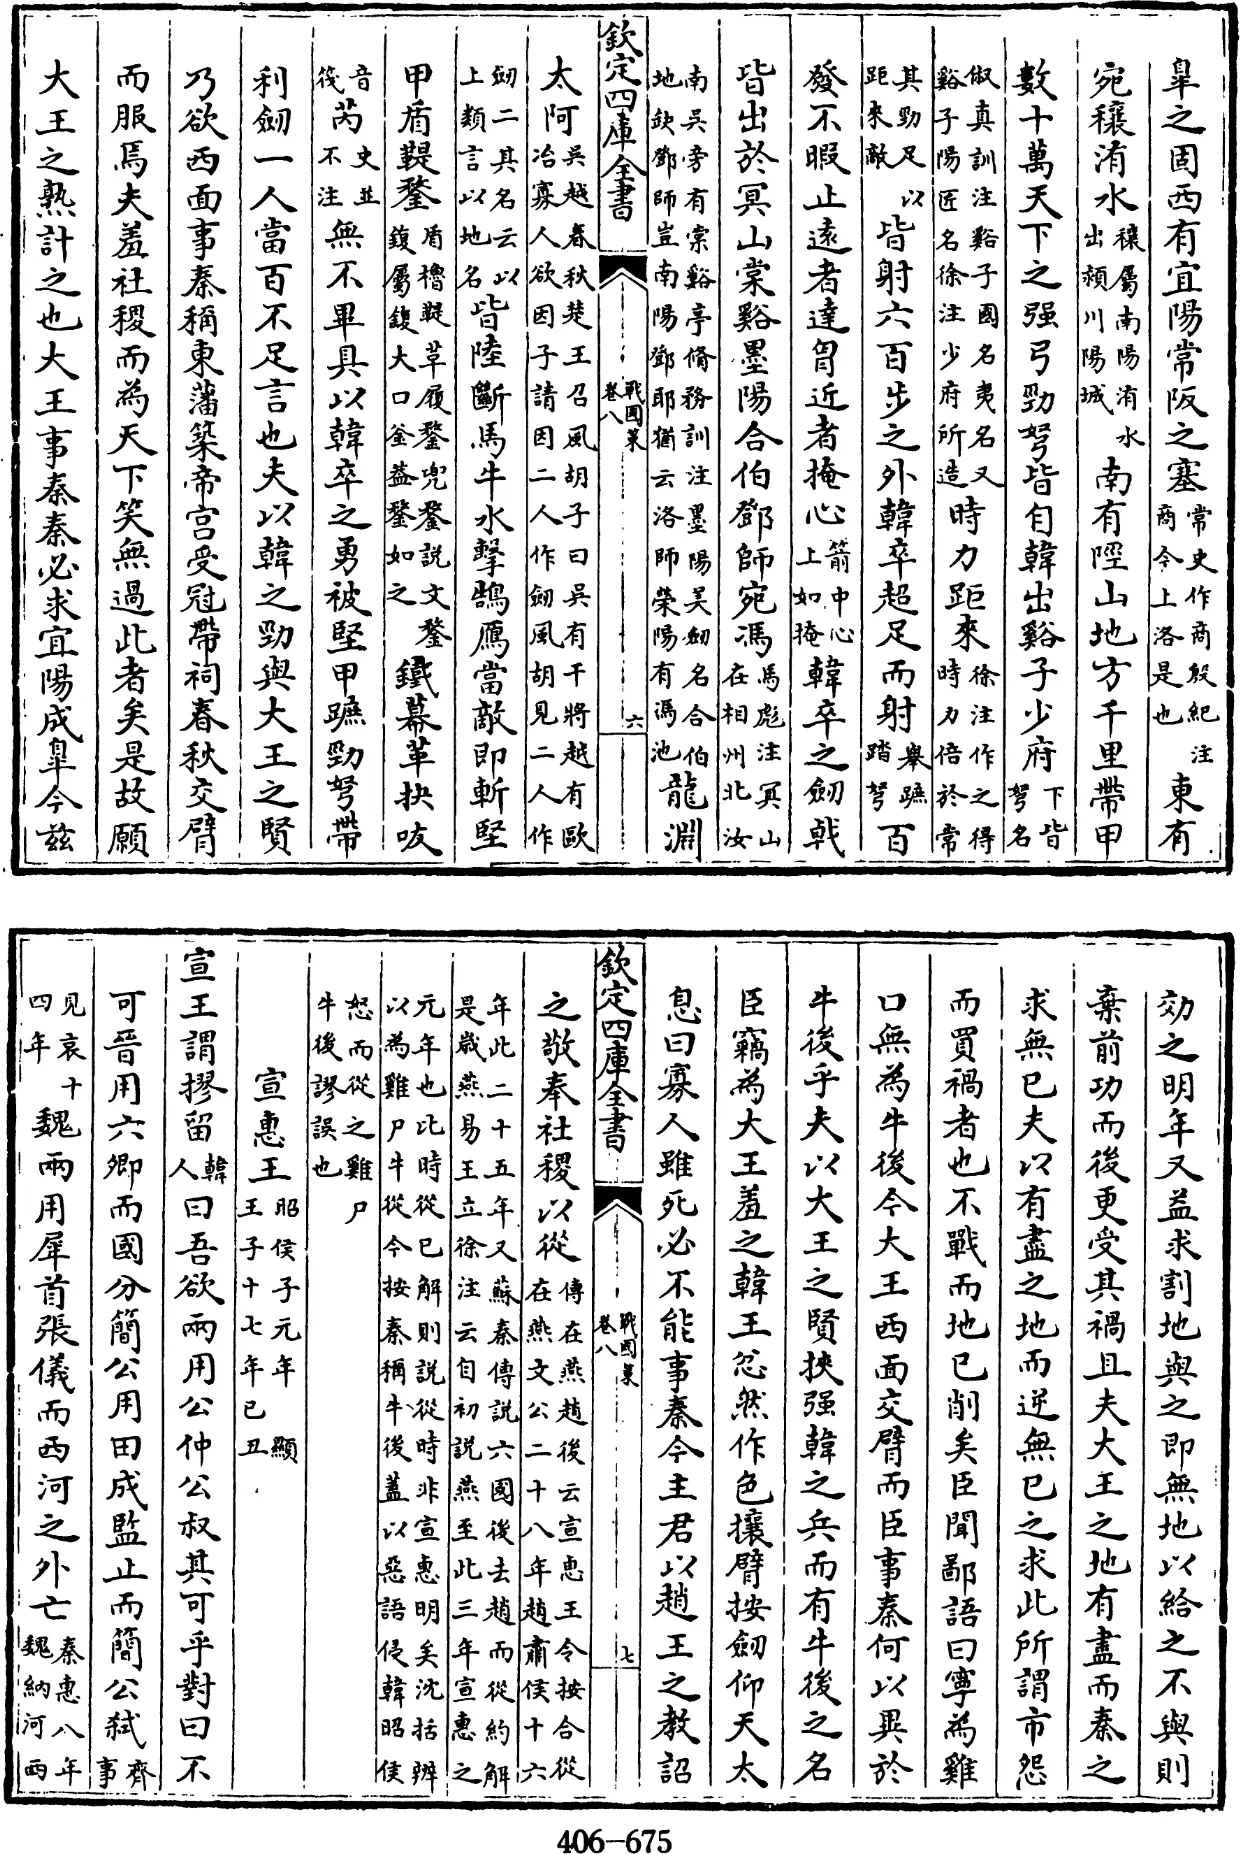 臯之固西有宜陽常阪之塞常史作商殷紀注商今上洛是也東有
宛穰洧水穰屬南陽洧水出潁川陽城南有陘山地方千里帶甲
數十萬天下之强弓勁弩皆自韓出谿子少府下皆弩名
俶真訓注谿子國名夷名又谿子陽匠名徐注少府所造時力距來徐注作之得時力倍於常
其勁足以距來敵皆射六百步之外韓卒超足而射舉蹠踏弩百
發不暇止遠者達胷近者掩心箭中心上如掩韓卒之劒戟
皆出於冥山棠谿墨陽合伯鄧師宛馮馬彪注冥山在相州北汝
南吳旁有棠谿亭脩務訓注墨陽美劒名合伯地欽鄧師豈南陽鄧耶猶云洛師榮陽有馮池龍淵
欽定四庫全書
戰國策
卷八
六
太阿吳越春秋楚王召風胡子曰吳有干將越有歐冶寡人欲因子請因二人作劒風胡見二人作
劒二其名云以上類言以地名皆陸斷馬牛水擊鵠鴈當敵即斬堅
甲盾鞮鍪盾櫓鞮草履鍪兜鍪說文鍪鍑屬鍑大口釜葢鍪如之鐵幕革抉㕹
音筏芮史並不注無不畢具以韓卒之勇被堅甲蹠勁弩帶
利劒一人當百不足言也夫以韓之勁與大王之賢
乃欲西面事秦稱東藩築帝宮受冠帶祠春秋交臂
而服焉夫羞社稷而為天下笑無過此者矣是故願
大王之熟計之也大王事秦秦必求宜陽成臯今兹
效之明年又益求割地與之即無地以給之不與則
棄前功而後更受其禍且夫大王之地有盡而秦之
求無已夫以有盡之地而逆無已之求此所謂市怨
而買禍者也不戰而地已削矣臣聞鄙語曰寧為雞
口無為牛後今大王西面交臂而臣事秦何以異於
牛後乎夫以大王之賢挾强韓之兵而有牛後之名
臣竊為大王羞之韓王忿然作色攘臂按劒仰天太
息曰寡人雖死必不能事秦今主君以趙王之教詔
欽定四庫全書
戰國策
卷八
七
之敬奉社稷以從傳在燕趙後云宣惠王今按合從在燕文公二十八年趙肅侯十六
年此二十五年又蘇秦傳說六國後去趙而從約解是歲燕易王立徐注云自初說燕至此三年宣惠之
元年也比時從已解則說從時非宣惠明矣沈括辨以為雞尸牛從今按秦稱牛後蓋以惡語侵韓昭侯
怒而從之雞尸牛後謬誤也
宣惠王昭侯子元年顯王子十七年己丑
宣王謂摎留韓人曰吾欲兩用公仲公叔其可乎對曰不
可晉用六卿而國分簡公用田成監止而簡公弑齊事
見哀十四年魏兩用犀首張儀而西河之外亡秦惠八年魏納河西
406-675